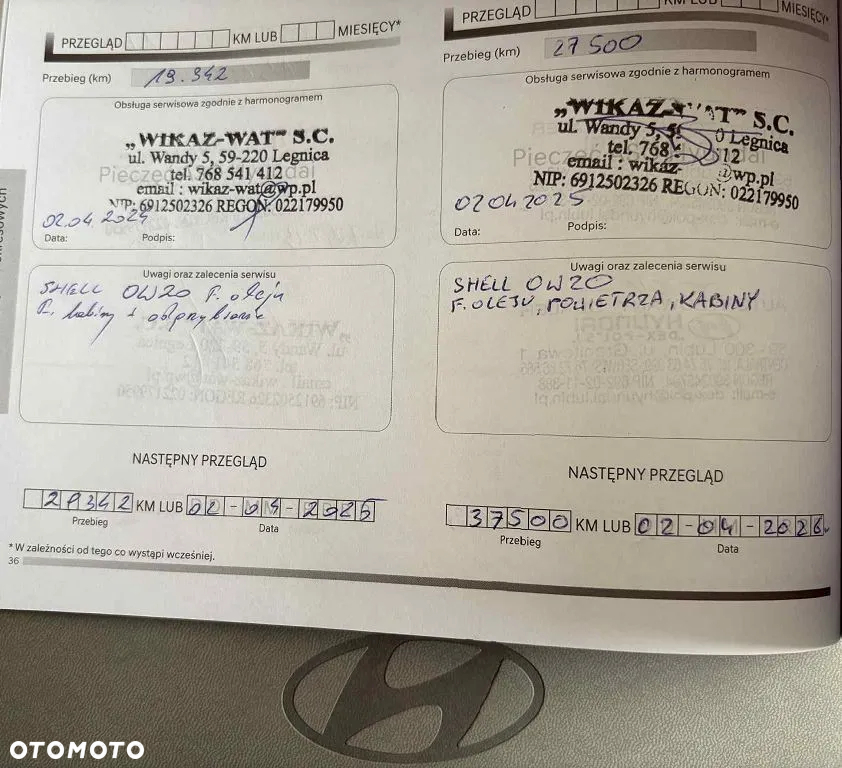 PRZEGLĄD KM LUB MIESIĘCY*
Przebieg (km) 19.342
Obsługa serwisowa zgodnie z harmonogramem
„WIKAZ-WAT" S.C.
ul. Wandy 5, 59-220 Legnica
tel. 768 541 412
email : wikaz-wat@wp.pl
NIP: 6912502326 REGON: 022179950
02.04.2024
Data: Podpis:
Uwagi oraz zalecenia serwisu
SHELL 0W20 F. oleju
F. kabiny +
NASTĘPNY PRZEGLĄD
29342 KM LUB 02-04-2025
Przebieg Data
* W zależności od tego co wystąpi wcześniej.
36
PRZEGLĄD KM LUB MIESIĘCY*
Przebieg (km) 27500
Obsługa serwisowa zgodnie z harmonogramem
„WIKAZ-WAT" S.C.
ul. Wandy 5, 0 Legnica
tel. 768 12
email : wikaz- @wp.pl
NIP: 6912502326 REGON: 022179950
02042025
Data: Podpis:
Uwagi oraz zalecenia serwisu
SHELL 0W20
F. OLEJU, POWIETRZA, KABINY
NASTĘPNY PRZEGLĄD
37500 KM LUB 02-04-2026
Przebieg Data
OTOMOTO